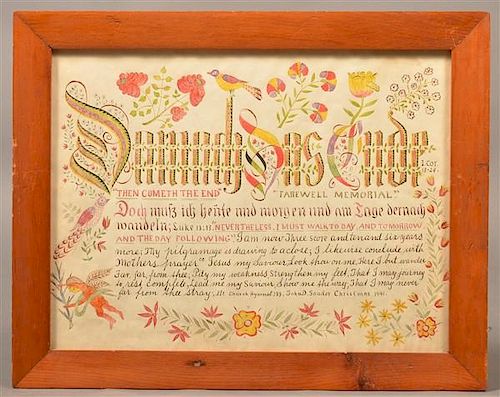 Darnach Das Ende
1. Cor.
15-24
"THEN COMETH THE END" "FAREWELL MEMORIAL"
Doch muß ich heute und morgen und am Tage dernach
wandeln; Luke 13:33. NEVERTHELESS, I MUST WALK TO DAY, AND TOMORROW
AND THE DAY FOLLOWING". I am now Three score and ten and six years
more; My pilgrimage is drawing to a close; I likewise conclude with
Mothers prayer "Jesus my Saviour Look thou on me, Here I but wander
Far, far from thee, Pity my weakness Strengthen my feet, That I may journey
to rest complete, Lead me my Saviour, Show me the way, That I may never
far from thee stray, Church Hymnal John D. Souder Christmas 1941.